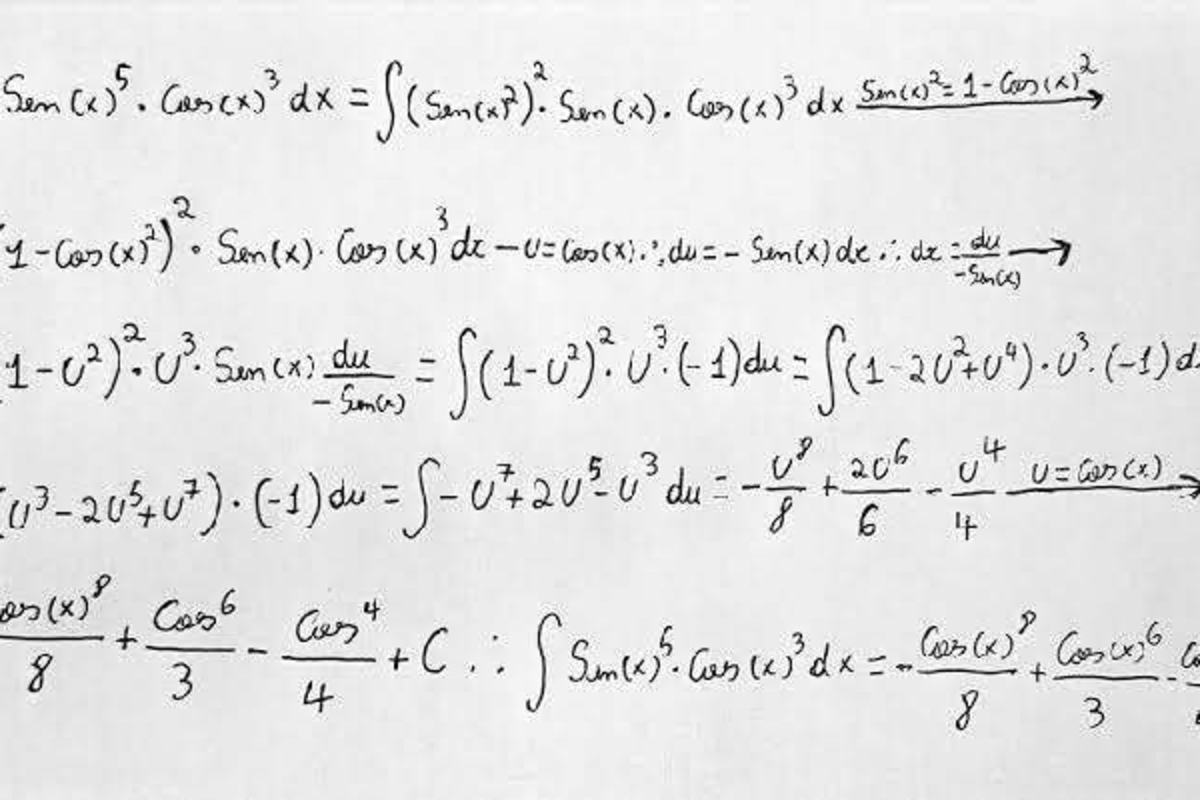 Sen(x)⁵ · Cos(x)³ dx = ∫(Sen(x)²)² · Sen(x) · Cos(x)³ dx Sen(x)² = 1 - Cos(x)² →
(1 - Cos(x)²)² · Sen(x) · Cos(x)³ dx — U = Cos(x) ∴ du = - Sen(x) dx ∴ dx = du/-Sen(x) →
1 - U²)² · U³ · Sen(x) du/-Sen(x) = ∫(1 - U²)² · U³ · (-1) du = ∫(1 - 2U² + U⁴) · U³ · (-1) d
(U³ - 2U⁵ + U⁷) · (-1) du = ∫ - U⁷ + 2U⁵ - U³ du = - U⁸/8 + 2U⁶/6 - U⁴/4 U = Cos(x) →
os(x)⁸/8 + Cos⁶/3 - Cos⁴/4 + C ∴ ∫ Sen(x)⁵ · Cos(x)³ dx = - Cos(x)⁸/8 + Cos(x)⁶/3 -